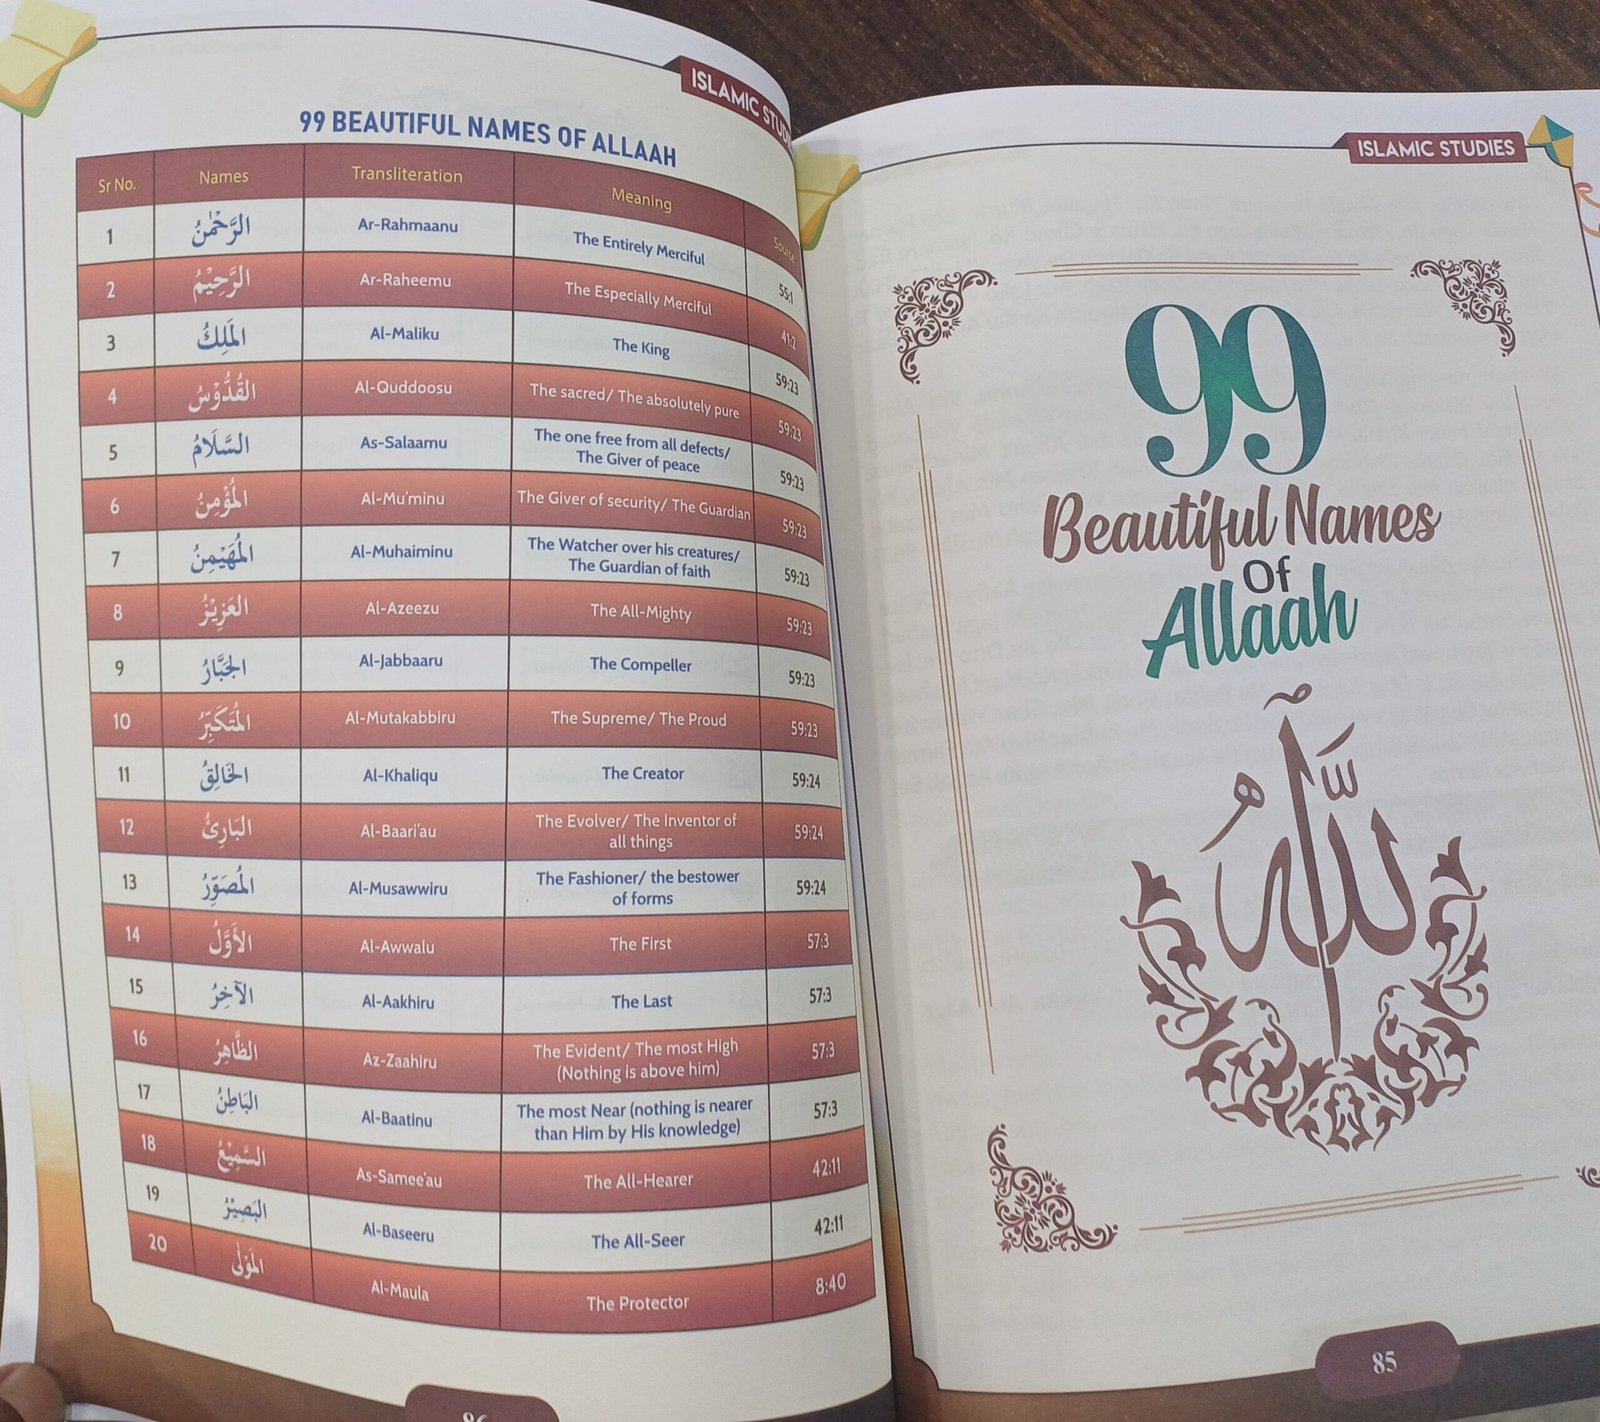 ISLAMIC STUDIES
99 BEAUTIFUL NAMES OF ALLAAH
Sr No. Names Transliteration Meaning Source
1 الرَّحْمٰنُ Ar-Rahmaanu The Entirely Merciful 55:1
2 الرَّحِيْمُ Ar-Raheemu The Especially Merciful 41:2
3 المَلِكُ Al-Maliku The King 59:23
4 القُدُّوْسُ Al-Quddoosu The sacred/ The absolutely pure 59:23
5 السَّلَامُ As-Salaamu The one free from all defects/
The Giver of peace 59:23
6 المُؤْمِنُ Al-Mu'minu The Giver of security/ The Guardian 59:23
7 المُهَيْمِنُ Al-Muhaiminu The Watcher over his creatures/
The Guardian of faith 59:23
8 العَزِيْزُ Al-Azeezu The All-Mighty 59:23
9 الجَبَّارُ Al-Jabbaaru The Compeller 59:23
10 المُتَكَبِّرُ Al-Mutakabbiru The Supreme/ The Proud 59:23
11 الخَالِقُ Al-Khaliqu The Creator 59:24
12 البَارِئُ Al-Baari'au The Evolver/ The Inventor of
all things 59:24
13 المُصَوِّرُ Al-Musawwiru The Fashioner/ the bestower
of forms 59:24
14 الأَوَّلُ Al-Awwalu The First 57:3
15 الآخِرُ Al-Aakhiru The Last 57:3
16 الظَّاهِرُ Az-Zaahiru The Evident/ The most High
(Nothing is above him) 57:3
17 البَاطِنُ Al-Baatinu The most Near (nothing is nearer
than Him by His knowledge) 57:3
18 السَّمِيْعُ As-Samee'au The All-Hearer 42:11
19 البَصِيْرُ Al-Baseeru The All-Seer 42:11
20 المَوْلٰى Al-Maula The Protector 8:40
86
ISLAMIC STUDIES
99
Beautiful Names
Of
Allaah
اللّٰهُ
85